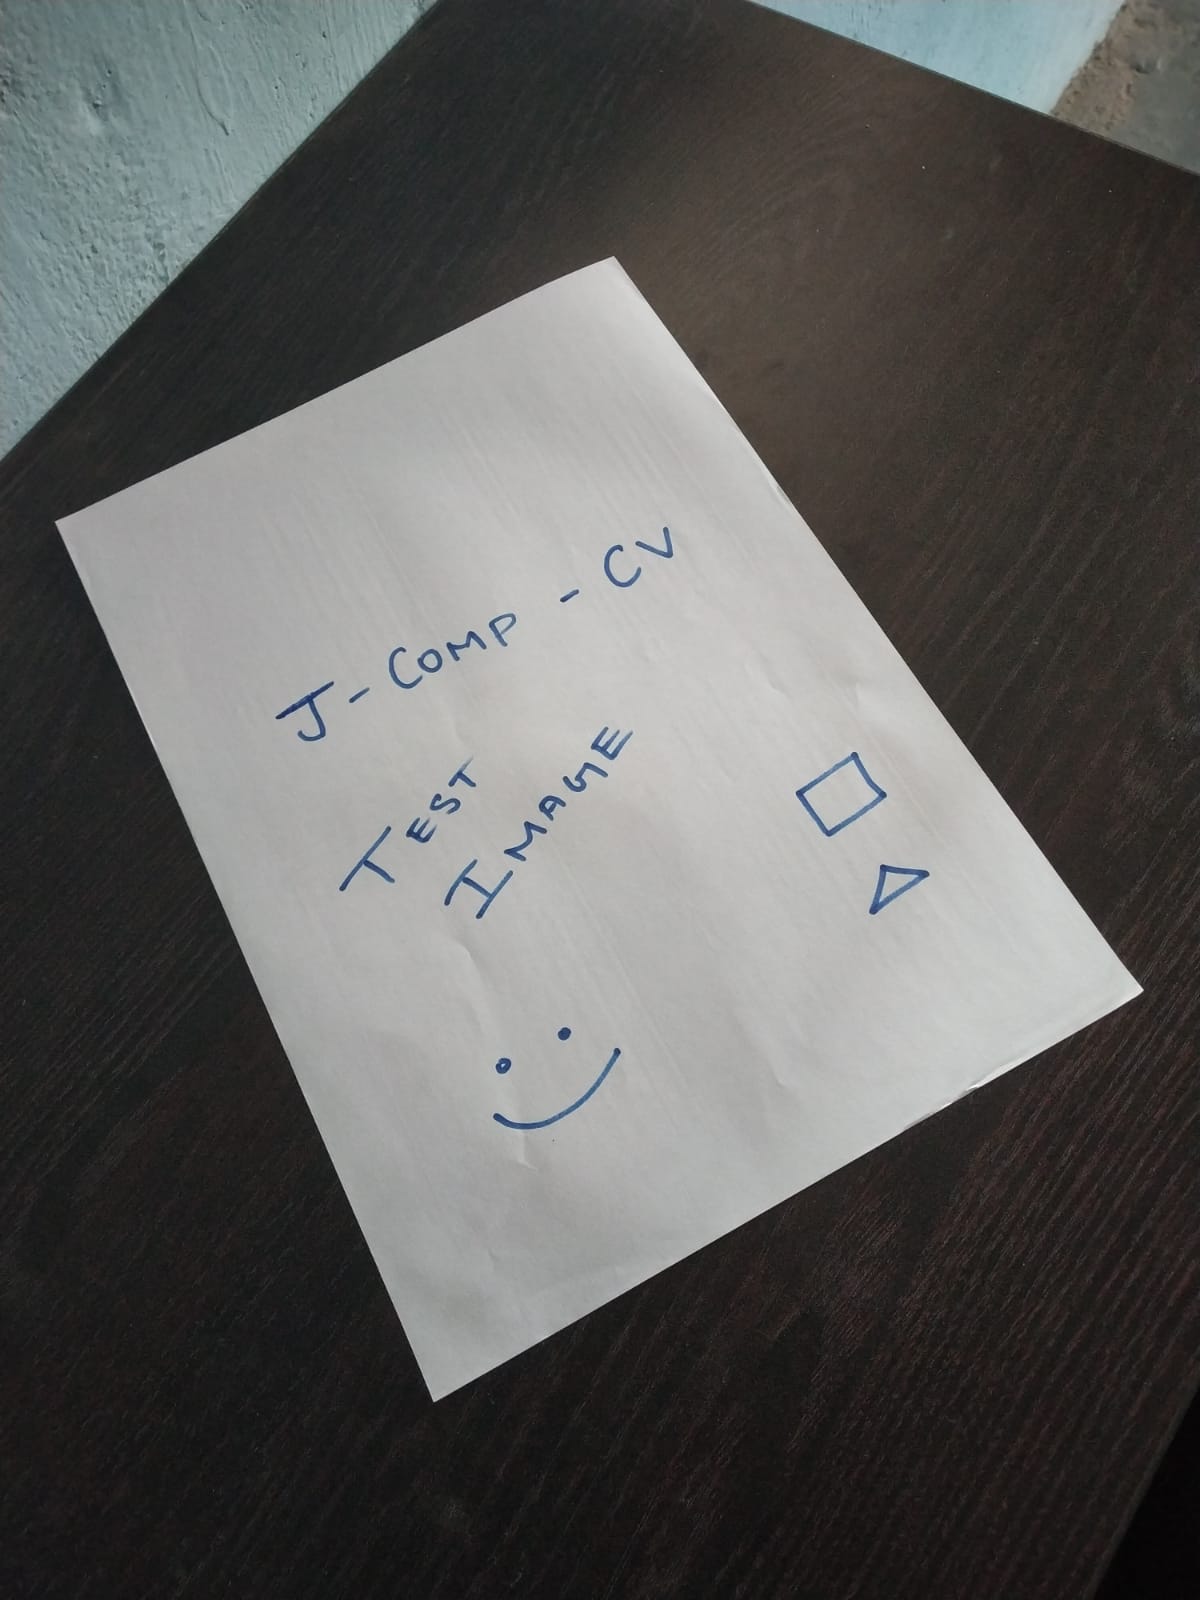 J-COMP - CV
TEST
IMAGE